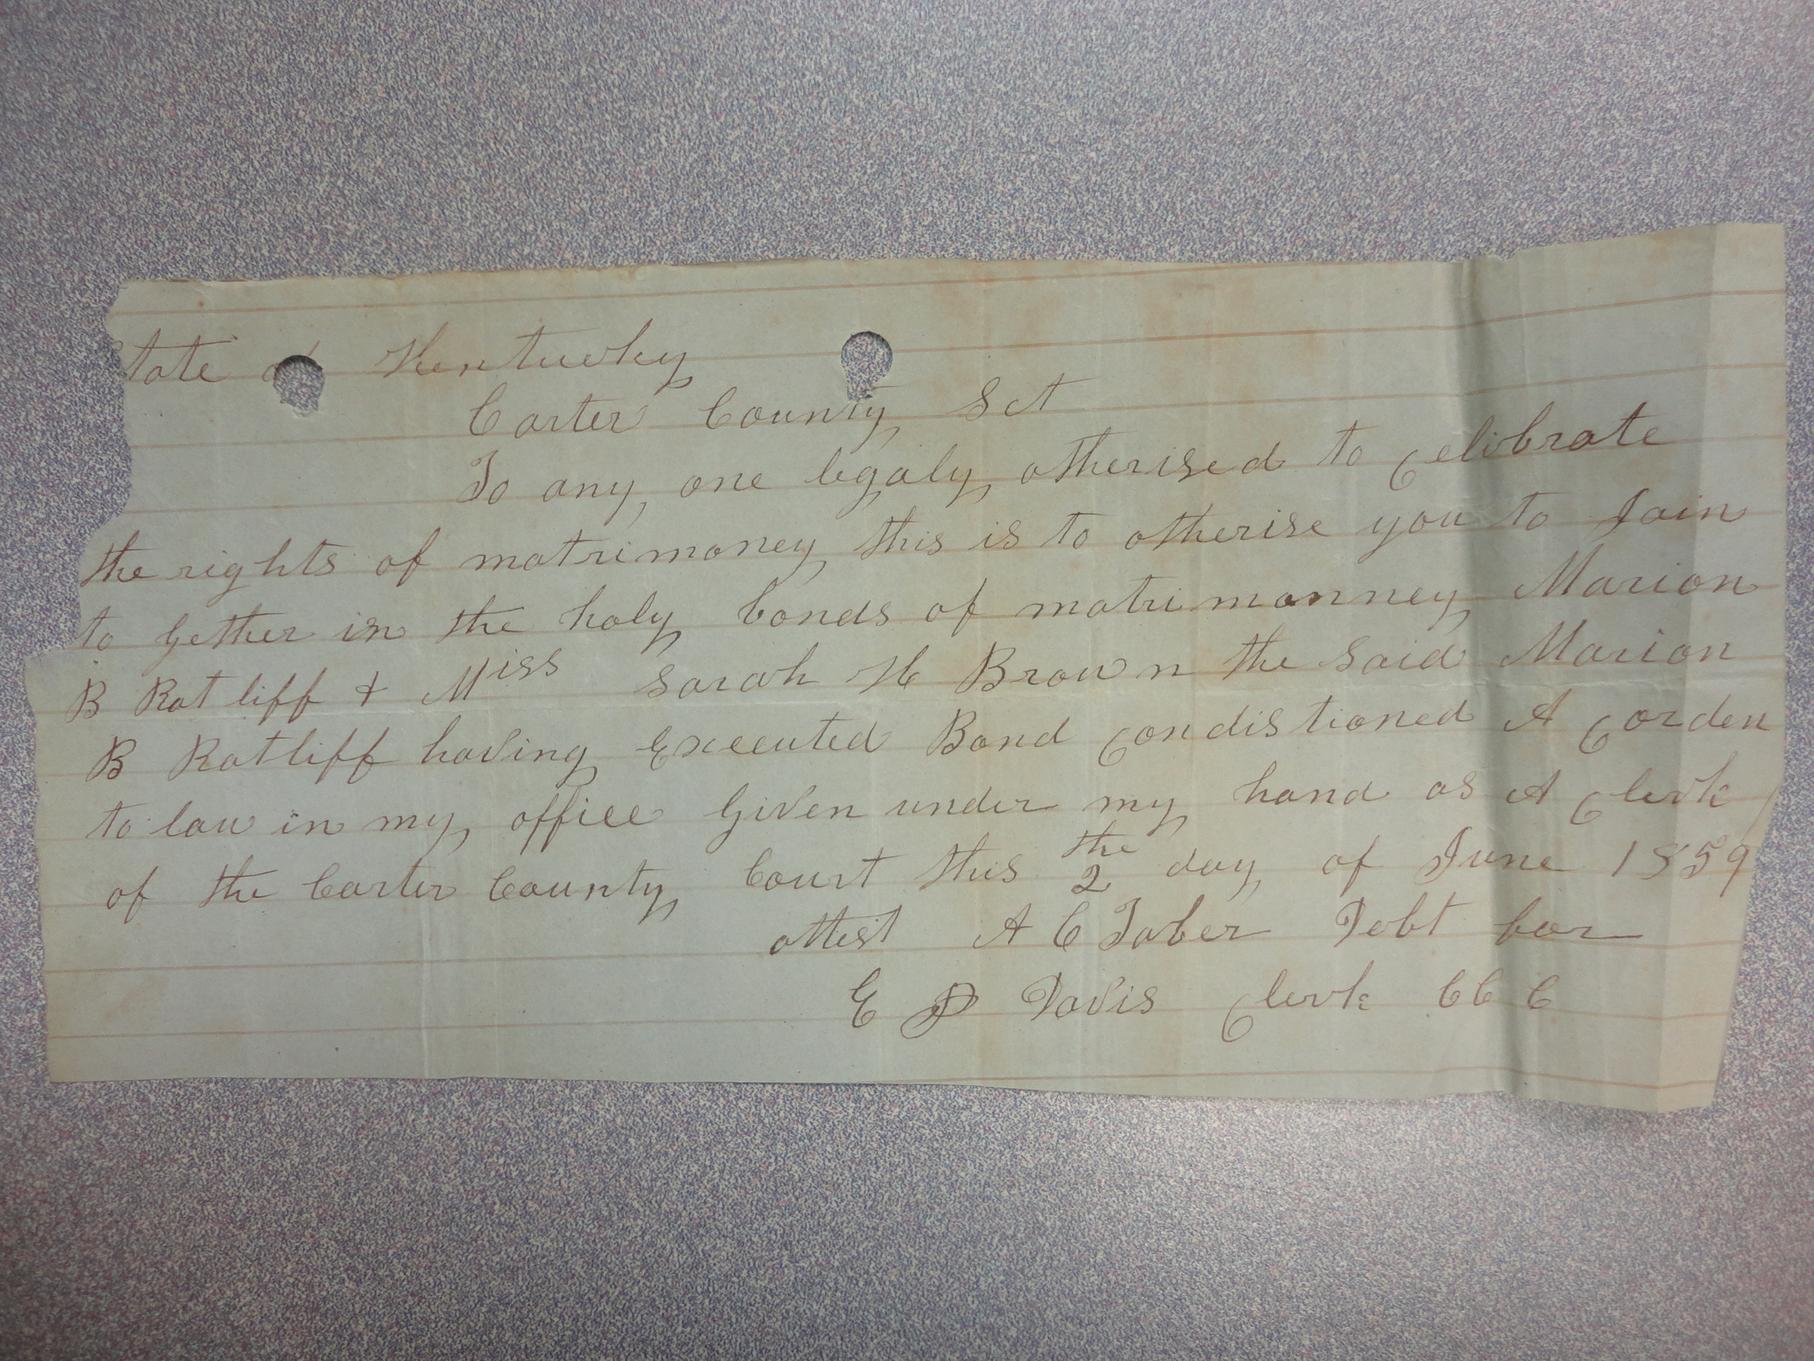 State of Kentucky
Carter County Sct
To any one legaly otherised to Celibrate
the rights of matrimoney this is to otherise you to Join
to gether in the holy bonds of matrimonney Marion
B Ratliff & Miss Sarah H Brown the said Marion
B Ratliff having Executed Bond Condistioned A Corden
to law in my office Given under my hand as A Clerk
of the Carter County Court this the 2 day of June 1859
attest A C Taber Debt for
E D Davis Clerk C C C